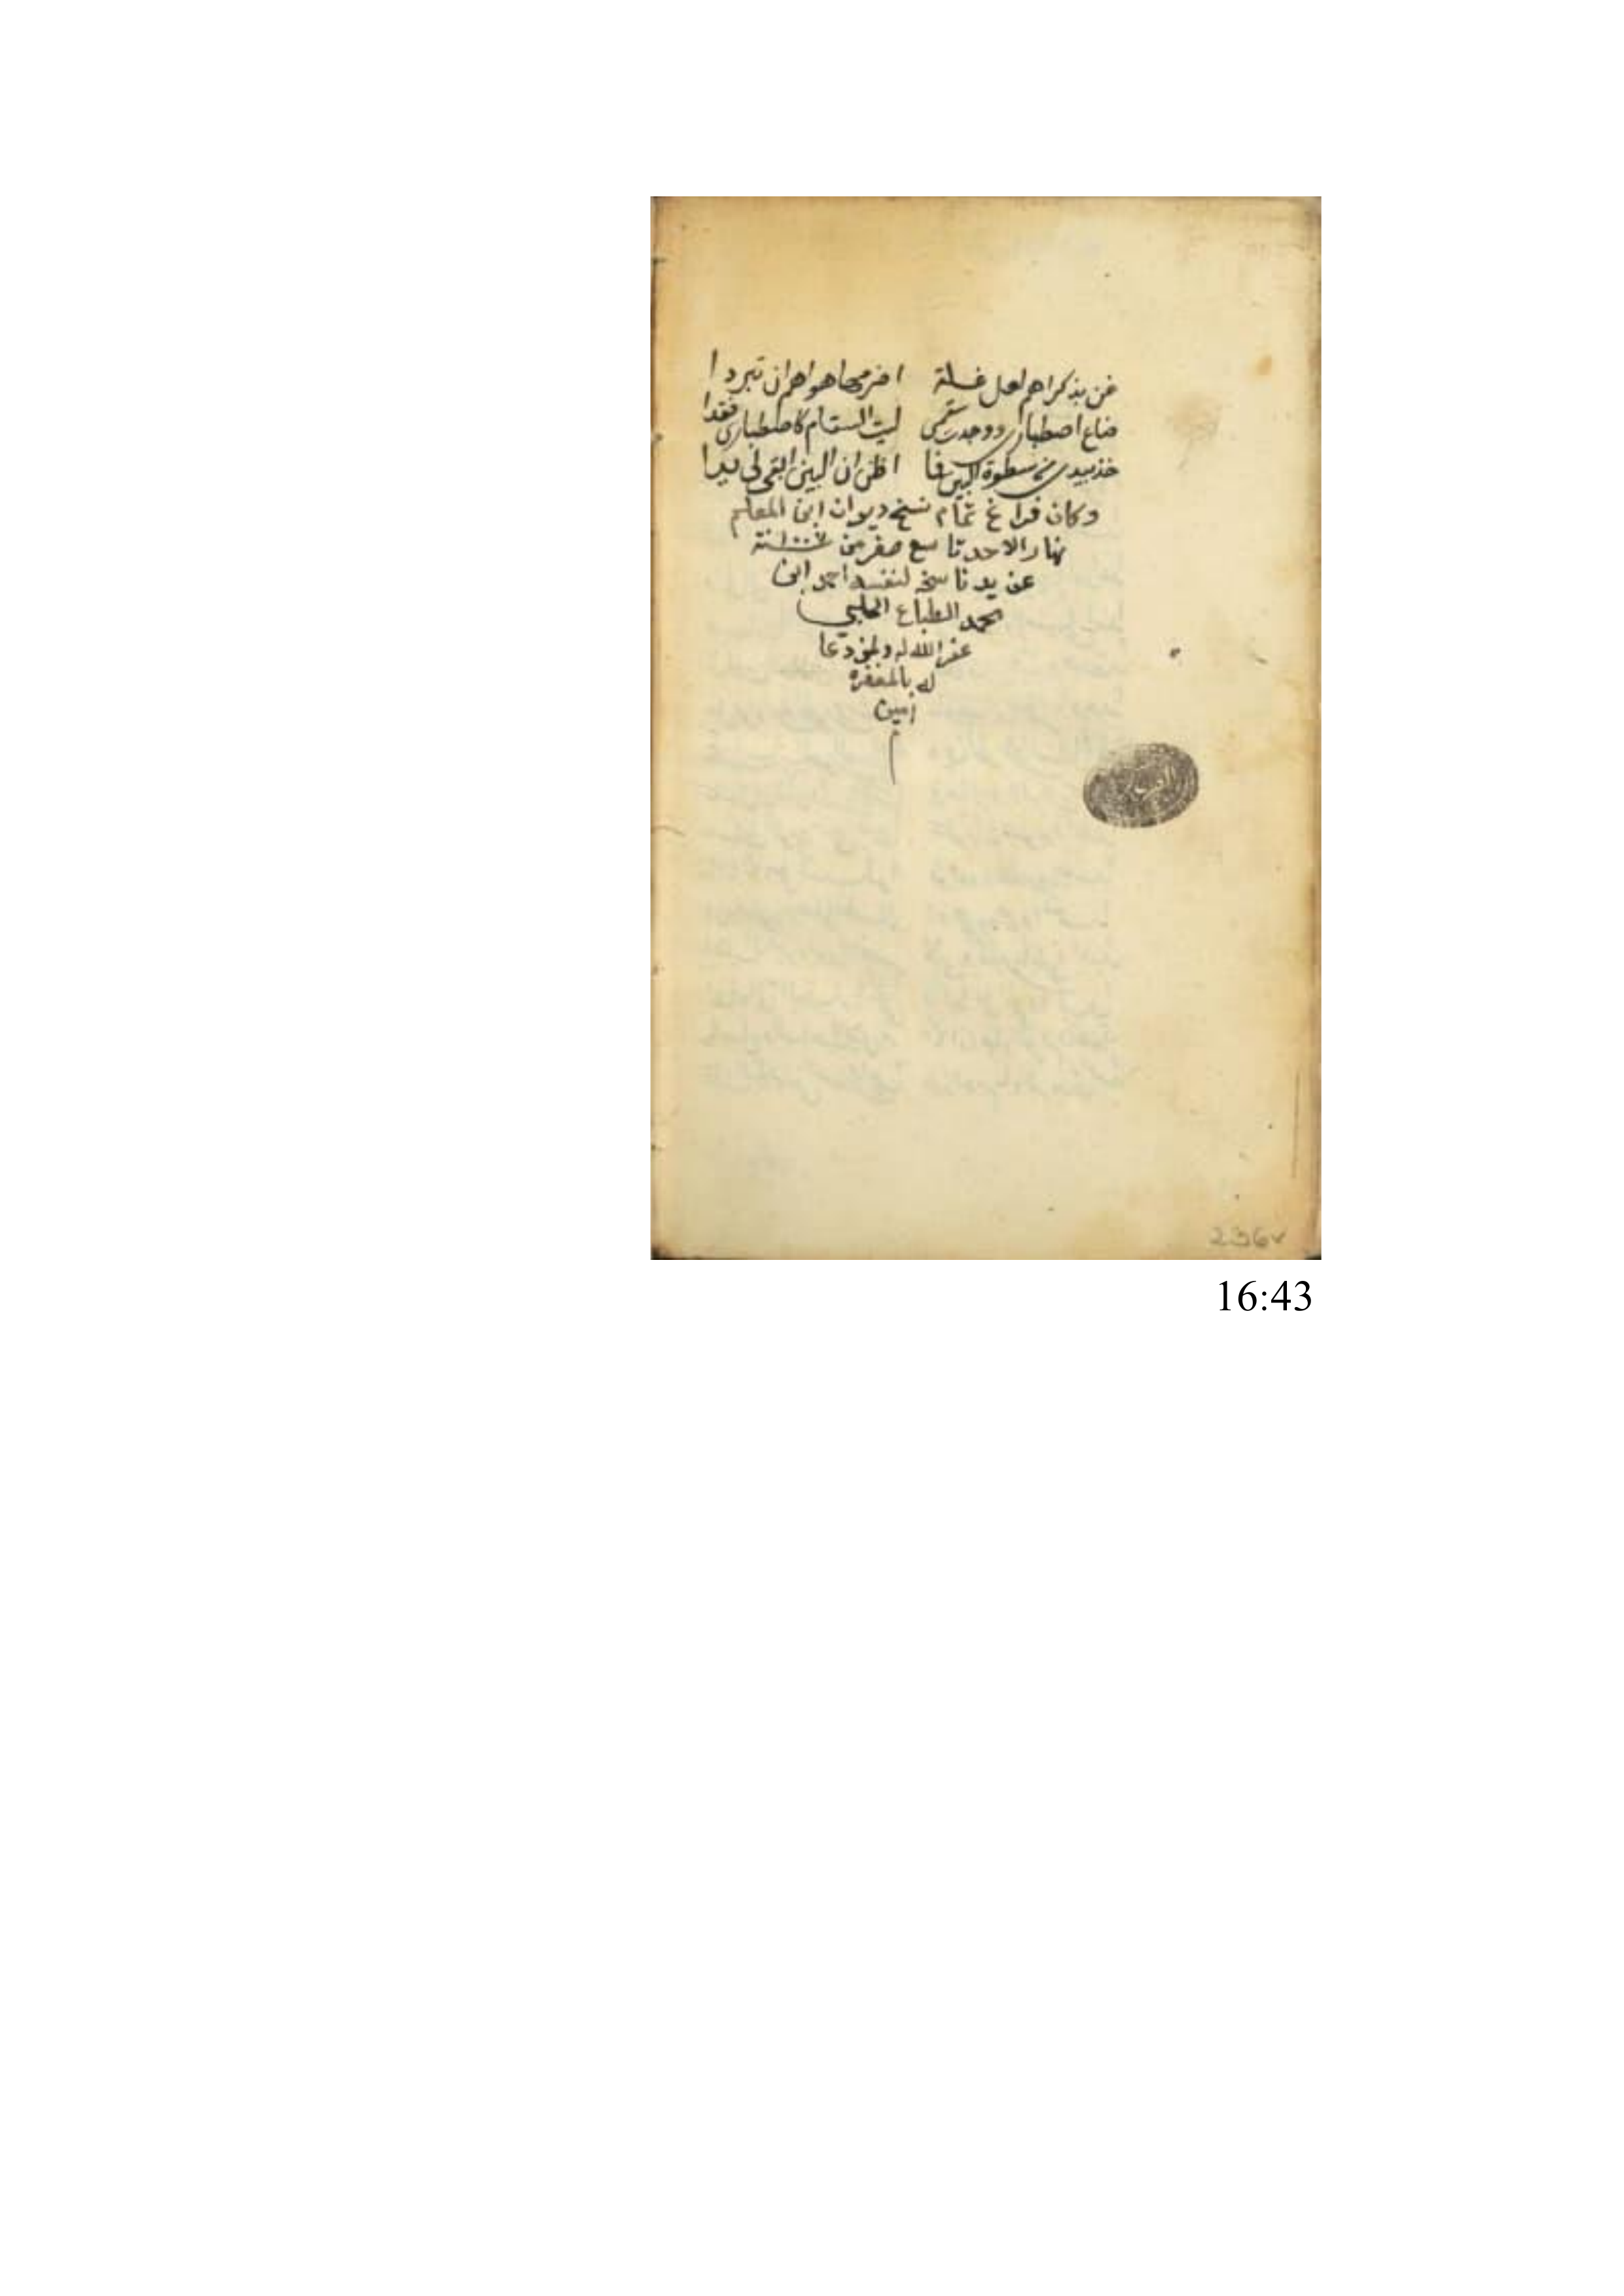 غن بذكراهم لعل غلة اضرمها هواهم ان تبردا
ضاع اصطباري ووجدت سقمي ليت السقام كاصطباري فقدا
خذ بيدي من سطوة البين فما اظن ان البين ابقى لي يدا
وكان فراغ تمام نسخ ديوان ابن المعلم
نهار الاحد تاسع صفر من سنة ١٠٠٧
عن يد ناسخه لنفسه احمد ابن
محمد الطباع الحلبي
غفر الله له ولمن دعا
له بالمغفره
امين
م
236v
16:43